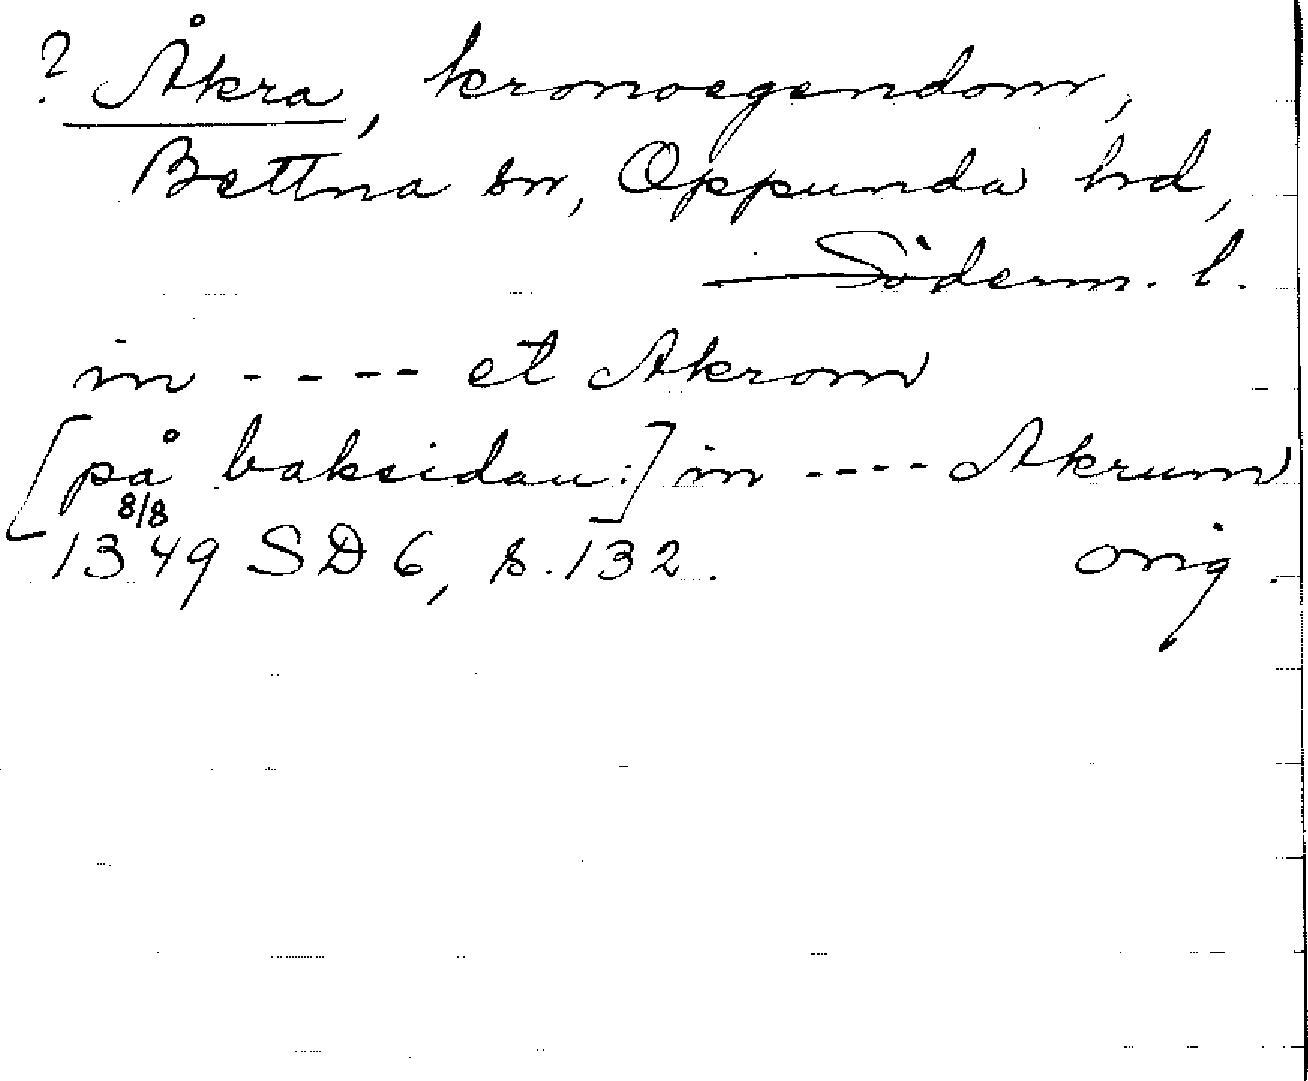 ? Åkra, kronoegendom,
Bettna sn, Oppunda hd,
Söderm. l.
in ---- et Akrom
[på baksidan:] in ---- Akrum
8/8
1349 SD 6, s. 132. orig.